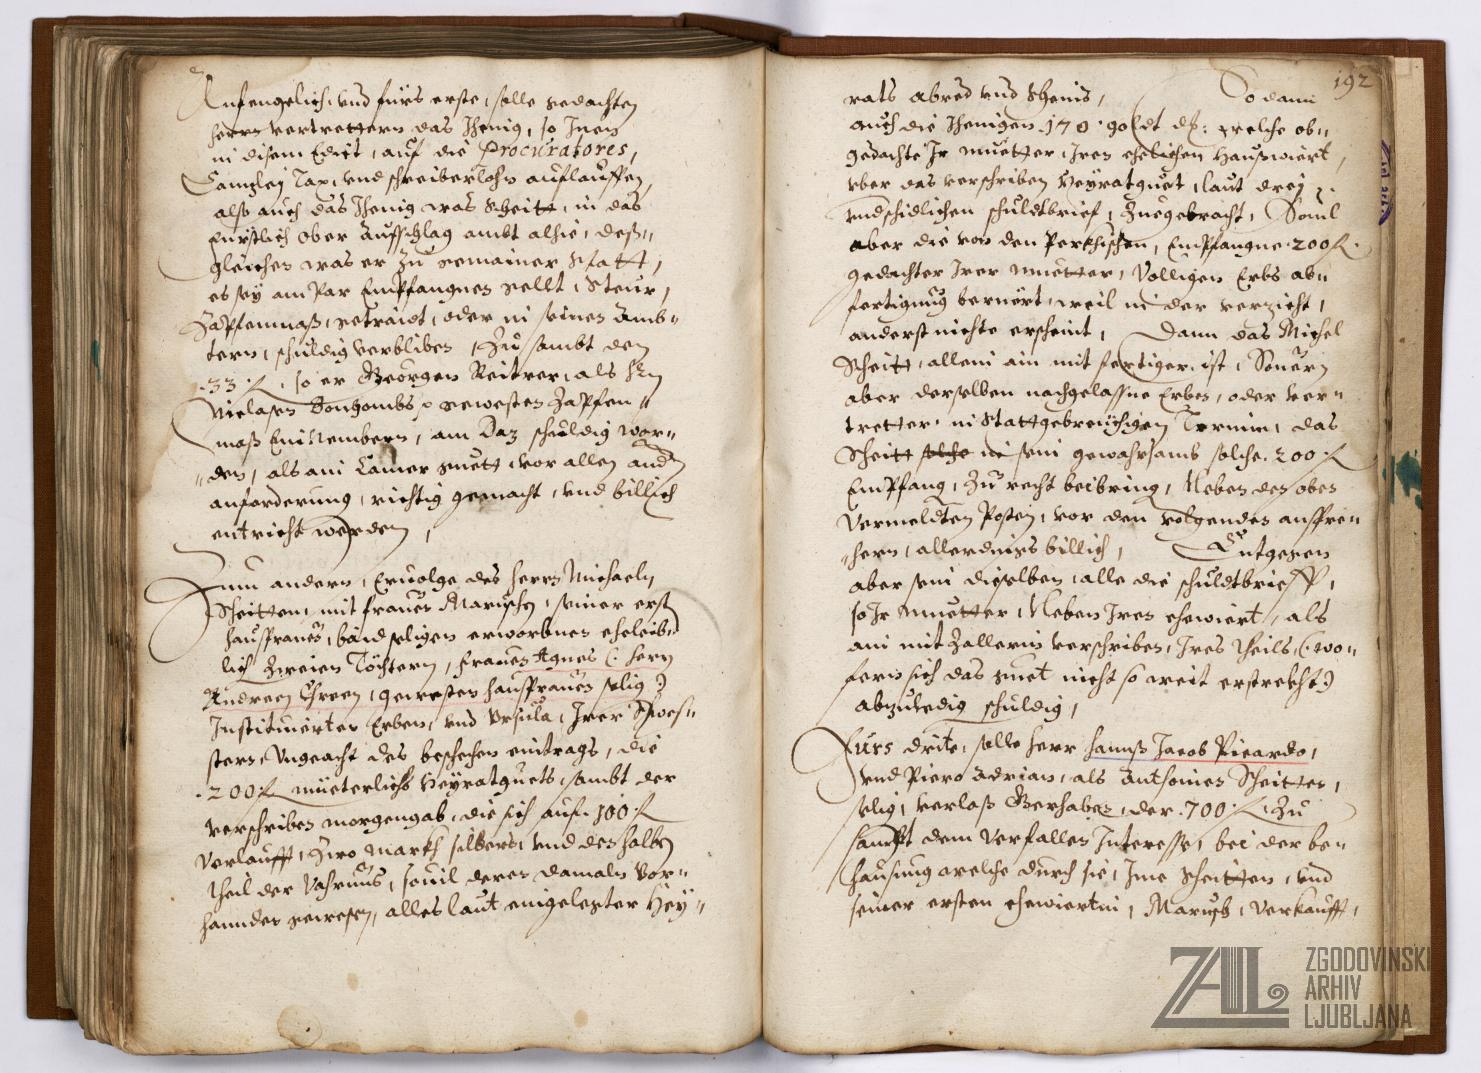 Anfengelich, vnd fürs erste, solle gedachten
herrn vertrettern das Jhenig, so Jnen
in disem Edict, auf die Procuratores,
Canzleÿ Tax, vnd schreiberlohn auflauffen,
also auch das Jhenig was Scheitt, in das
Fürstlich Ober Aufschlag ambt alhie, deß„
gleichen was er zu gemainer Statt,
es seÿ am Par Empfangnen gellt, Steur,
Zapfenmaß, getraidt, oder in seinen Ämb„
tern, schuldig verbliben, Zu sambt den
33 f. so er Georgen Reitrer, als
Niclasen gewesten Zapfen„
maß Einnembern, am Daz schuldig wor„
„den, als ain Camer guett, vor allen andern
anforderung, richtig gemacht, vnd billich
entricht werden,
Zum andern, Eruolge des herrn Michaeln
Scheitten, mit frauen Maruschen, seiner ersten
haußfrauen, baid seligen erworbnen eheleib„
lich Zweien Töchtern, frauen Agnes (: herrn
Andreen Chreen, gewesten haußfrauen selig :)
Jnstituierten Erben, vnd Vrsula, Jrer Schwes„
stern, Vngeacht des beschechen eintrags, die
200 f. müeterlichs Heÿratguets, sambt der
verschriben morgengab, die sich auf 100 f.
Verlaufft, Zwo Markh silbers, vnd den halben
theil der Vahrnus, souil deren damaln vor„
handen gewesen, alles laut eingelegter Heÿ„
192
rats abred vnd, So dann
auch die Jhenigen 170 goldt: welche ob„
gedachte Jr muetter, Jren ehelichen Haußwiert,
vber das verschriben Heÿratguet, laut dreÿ
vndschidlichen schuldtbrief, Zuegebracht, Souil
aber die von den Perkhischen, Empfangne 200 f.
gedachter Jrer muetter, Völligen Erbs ab„
fertigung beruert, weil in der verzicht,
anderst nichts erscheint, Dann das Michel
Scheitt, allein ain mit fertiger ist, Souern
aber derselben nachgelassne Erben, oder ver„
tretter, in Stattgebreüchigen Termin, das
Scheitt solche in sein gewahrsamb solche 200 f.
Empfang, Zu recht beibring, Neben den oben
Vermeldten Posten, vor den volgenden anspre„
„chern, allerdings billich, Entgegen
aber sein dieselben, alle die schuldtbrieff,
so Jr muetter, Neben Jren ehewiert, als
ain mit Zallerin verschriben, Jres theils, (: wo„
fern sich das guet nicht so weit erstrekht :)
abzuledig schuldig,
Fürs drite, solle herr Hannß Jacob Picardo,
vnd Piero Adrian, als Anthonien Scheitten,
selig, verlaß Gerhaben, der 700 f. Zu
sambt dem verfallen Jnteresse, bei der be„
hausung welche durch sie, Jme Scheitten, vnd
seiner ersten ehewiertin, Marusch, verkaufft,
ZAL
ZGODOVINSKI
ARHIV
LJUBLJANA